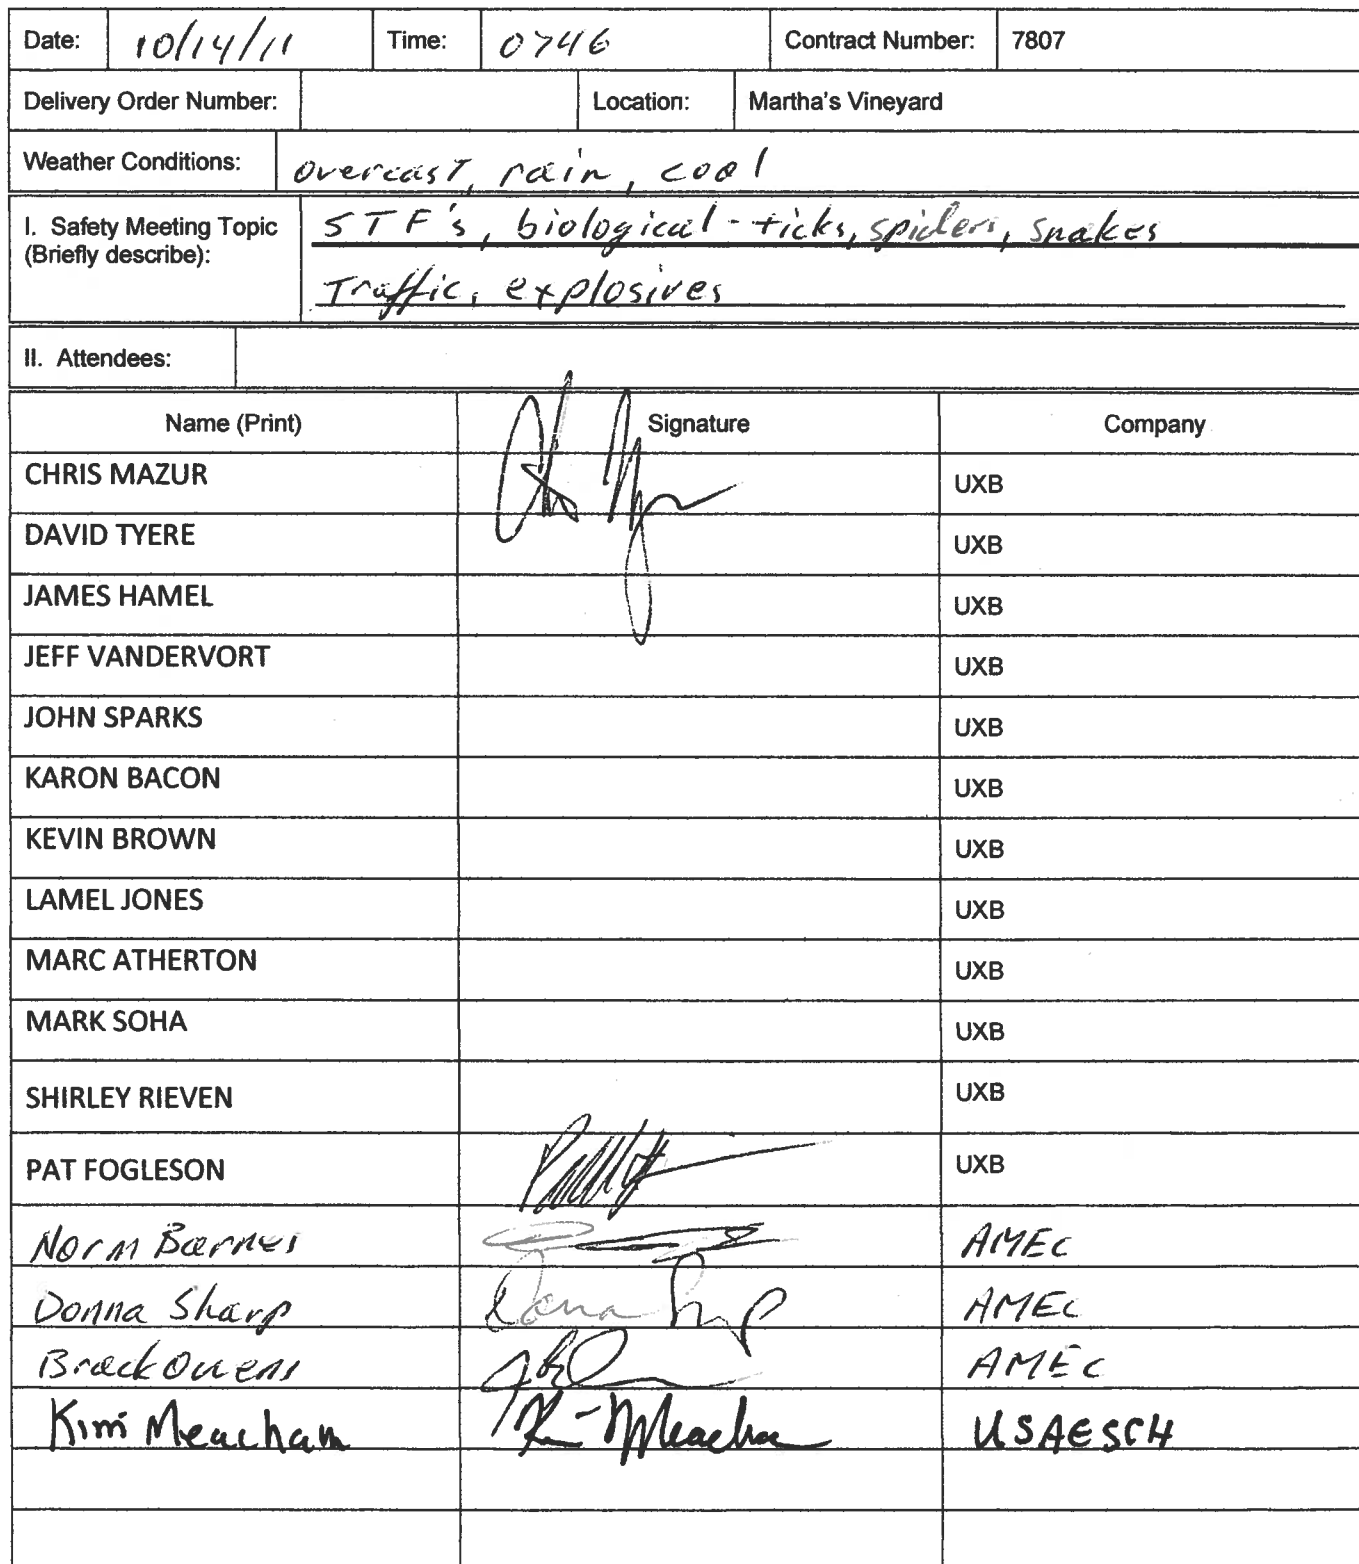 Date: 10/14/11 Time: 0746 Contract Number: 7807
Delivery Order Number: Location: Martha's Vineyard
Weather Conditions: overcast, rain, cool
I. Safety Meeting Topic (Briefly describe): STF's, biological - ticks, spiders, snakes
Traffic, explosives
II. Attendees:
Name (Print) Signature Company
CHRIS MAZUR UXB
DAVID TYERE UXB
JAMES HAMEL UXB
JEFF VANDERVORT UXB
JOHN SPARKS UXB
KARON BACON UXB
KEVIN BROWN UXB
LAMEL JONES UXB
MARC ATHERTON UXB
MARK SOHA UXB
SHIRLEY RIEVEN UXB
PAT FOGLESON UXB
Norm Barnes AMEC
Donna Sharp AMEC
Brack Owens AMEC
Kim Meacham Kim Meacham USAESCH